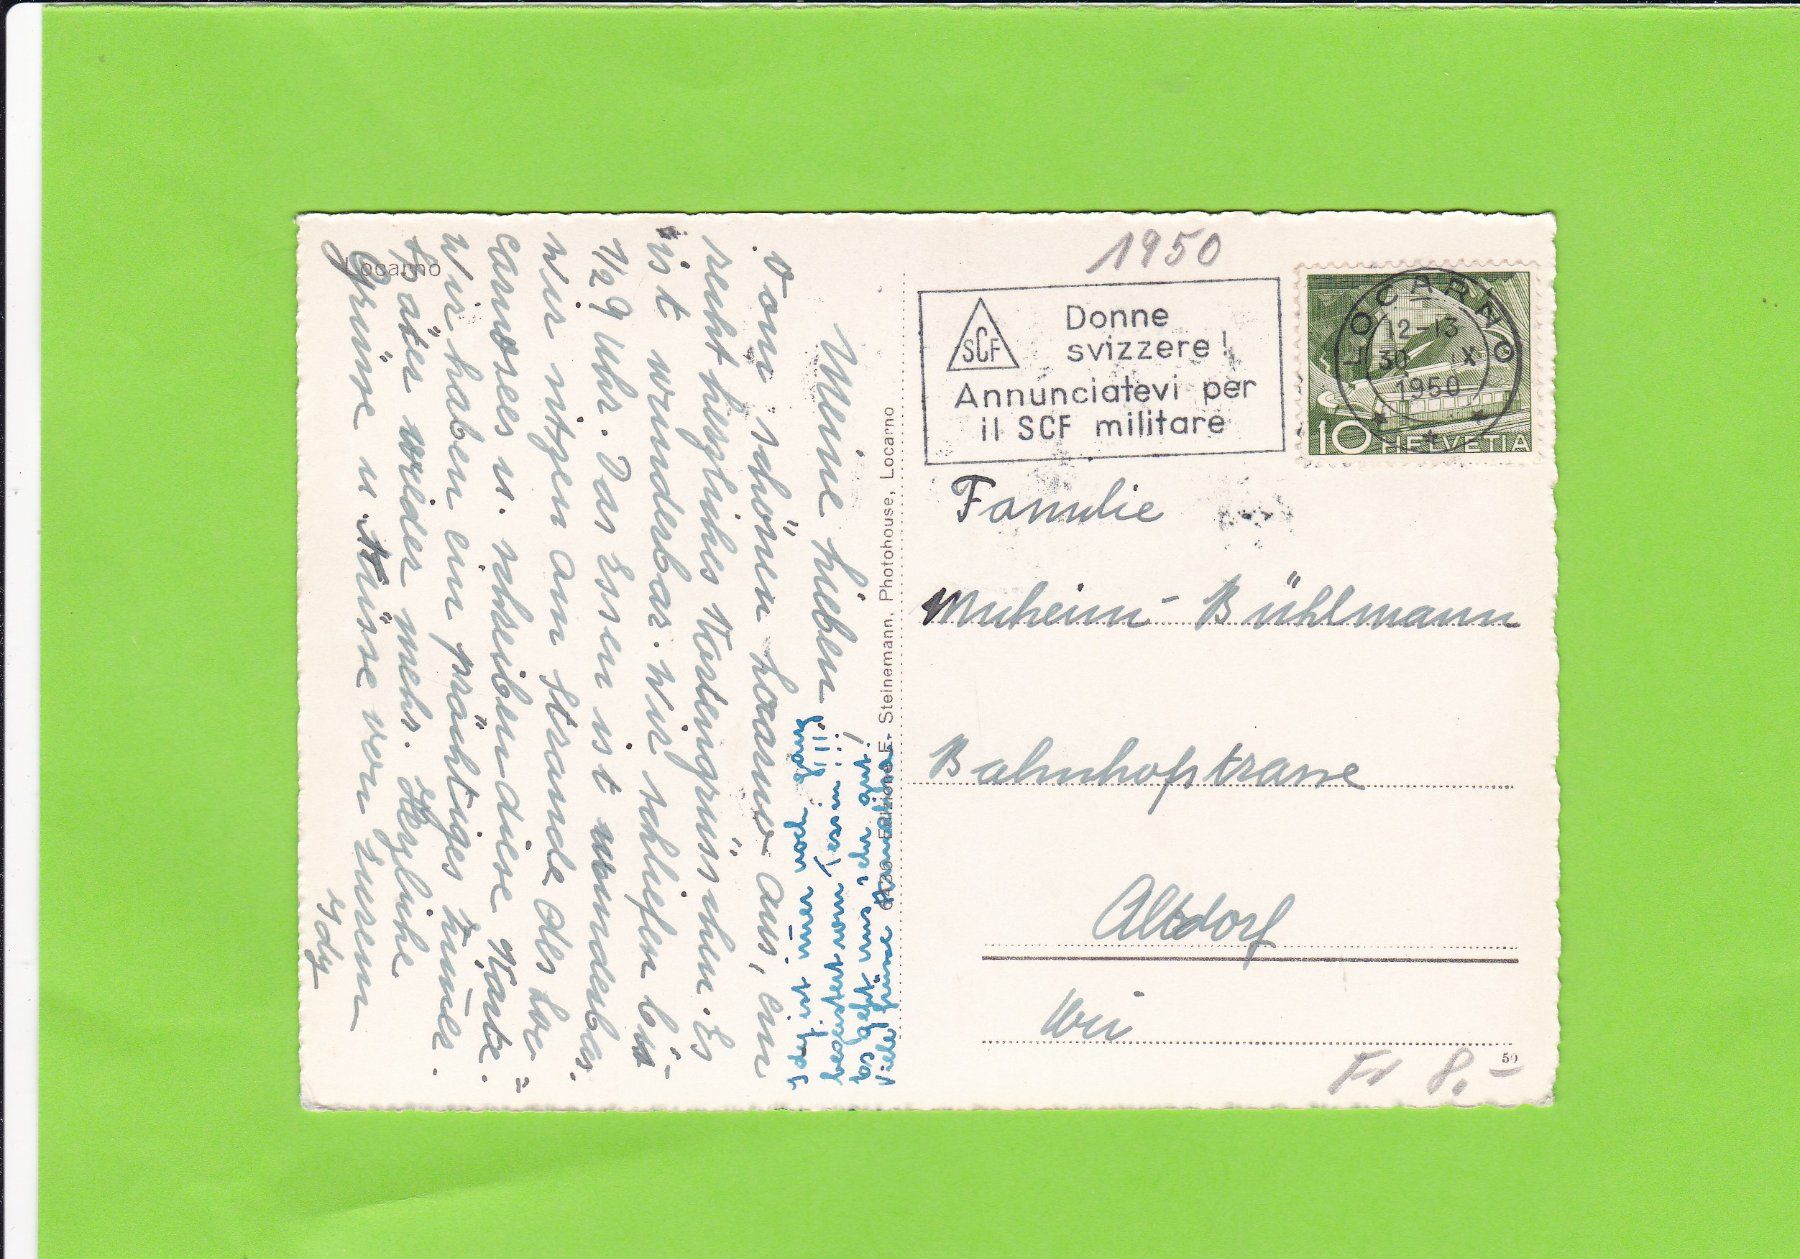 Locarno
Meine Lieben
Vom schönen Locarno aus, ein
recht herzliches Kartengrüsschen. Es
ist wunderbar. Wir schliefen bis
1/2 9 Uhr. Das Essen ist wunderbar.
Wir sitzen am Strande des Lo-
carnosees u. schreiben diese Karte.
Wir haben ein prächtiges Zimer.
Später wieder mehr. Herzliche
Grüsse u. Küsse von Eurem
Idy
Idy ist imer noch ganz
begeistert vom Tessin!!!
Es geht uns sehr gut!
Viele Grüsse
Edizione E. Steinemann, Photohouse, Locarno
1950
SCF
Donne
svizzere!
Annunciatevi per
il SCF militare
LOCARNO
12-13
30 IX
1950
10 HELVETIA
Familie
Muheim-Bühlmann
Bahnhofstrasse
Altdorf
Uri
50
Fr 8.-